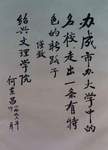 办成市办大学中的
名校走出一条有特
色的新路子
绍兴文理学院
何东昌